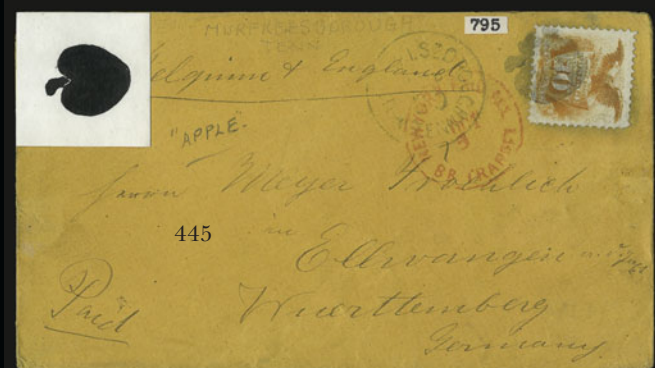 MURFREESBOROUGH
TENN
795
Belgium & England
10
"APPLE"
NEW YORK
ALL
BR. TRANSIT
Herrn Meyer Froehlich
445
in
Ellwangen
Paid
Wuerttemberg
Germany